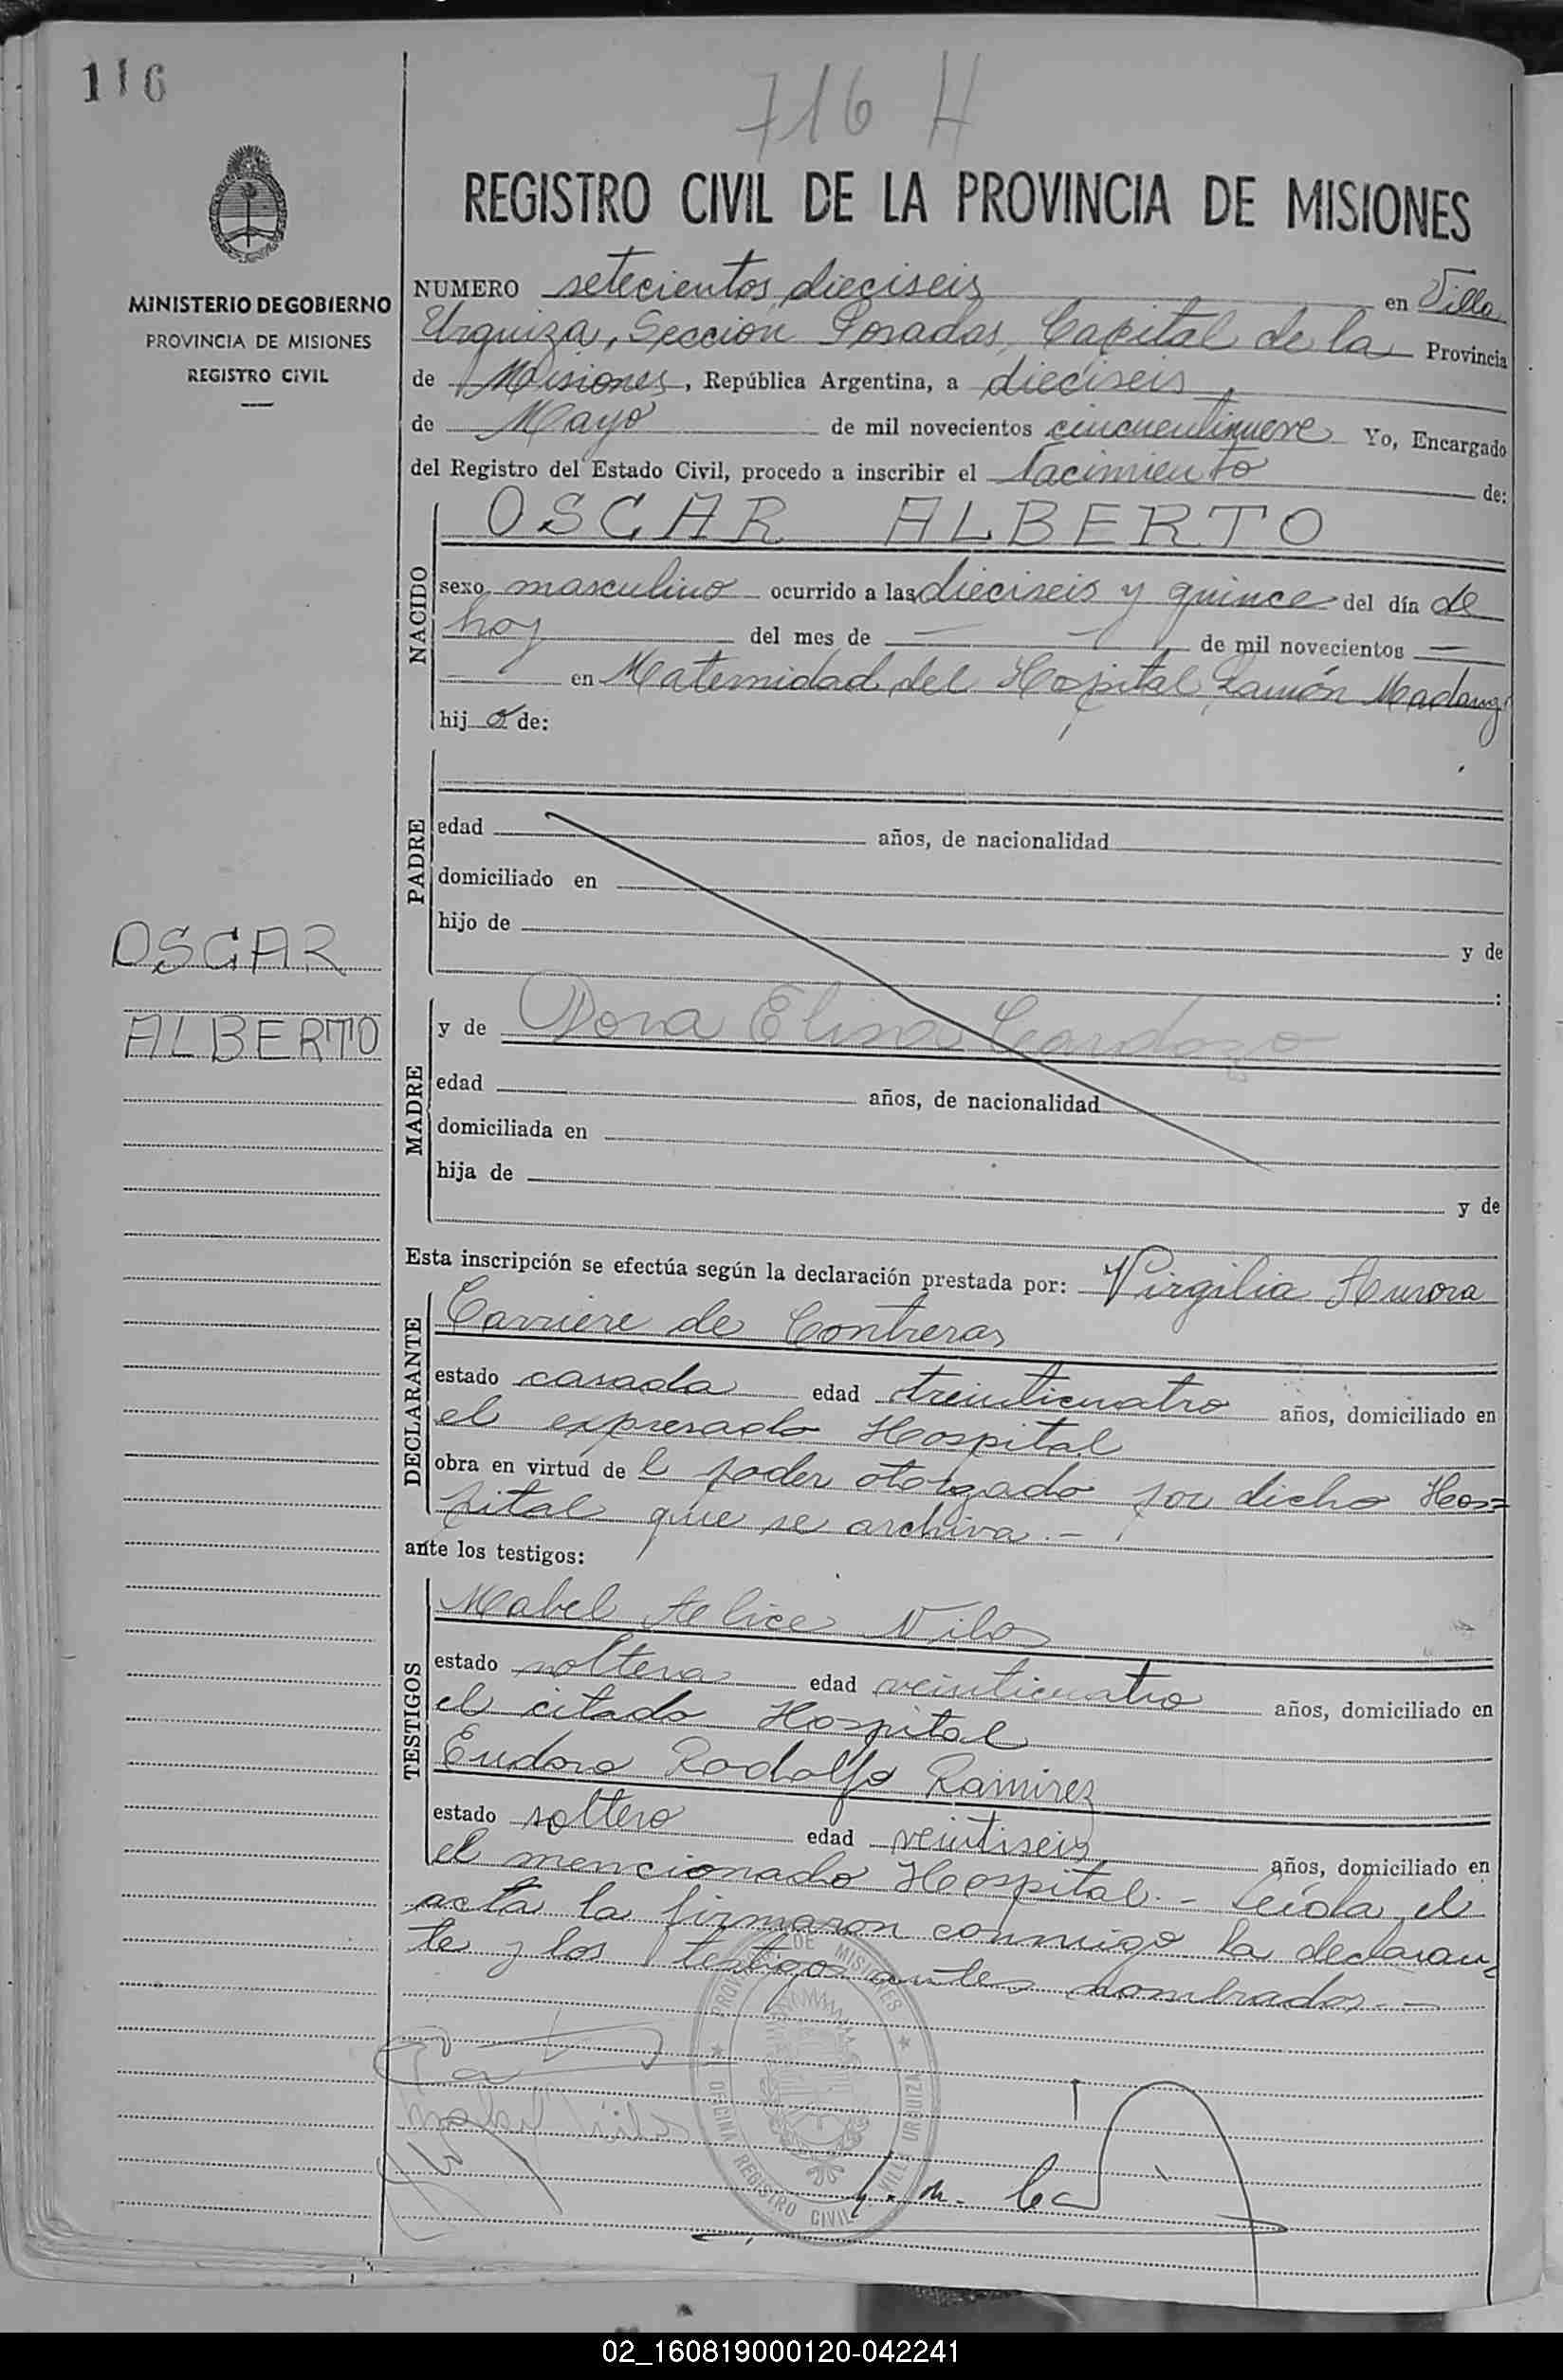 116
716 H
MINISTERIO DE GOBIERNO
PROVINCIA DE MISIONES
REGISTRO CIVIL
REGISTRO CIVIL DE LA PROVINCIA DE MISIONES
NUMERO setecientos dieciseis en Villa
Urquiza, Sección Posadas, Capital de la Provincia
de Misiones, República Argentina, a dieciseis
de Mayo de mil novecientos cincuentinueve Yo, Encargado
del Registro del Estado Civil, procedo a inscribir el Nacimiento de:
OSCAR ALBERTO
NACIDO
sexo masculino ocurrido a las dieciseis y quince del día de
hoy del mes de — de mil novecientos —
en Maternidad del Hospital Ramón Madariaga
hijo de:
PADRE
edad años, de nacionalidad
domiciliado en
hijo de y de
:
OSCAR
ALBERTO
MADRE
y de Dora Elisa Cardozo
edad años, de nacionalidad
domiciliada en
hija de y de
Esta inscripción se efectúa según la declaración prestada por: Virgilia Aurora
DECLARANTE
Carriere de Contreras
estado casada edad treinticuatro años, domiciliado en
el expresado Hospital
obra en virtud de l poder otorgado por dicho Hos=
pital que se archiva.-
ante los testigos:
TESTIGOS
Mabel Alice Vilos
estado soltera edad veinticuatro años, domiciliado en
el citado Hospital
Eudoro Rodolfo Ramirez
estado soltero edad veintiseis años, domiciliado en
el mencionado Hospital.- Leída el
acta la firmaron conmigo la declaran=
te y los testigos antes nombrados.-
PROVINCIA DE MISIONES
OFICINA REGISTRO CIVIL VILLA URQUIZA
02_160819000120-042241